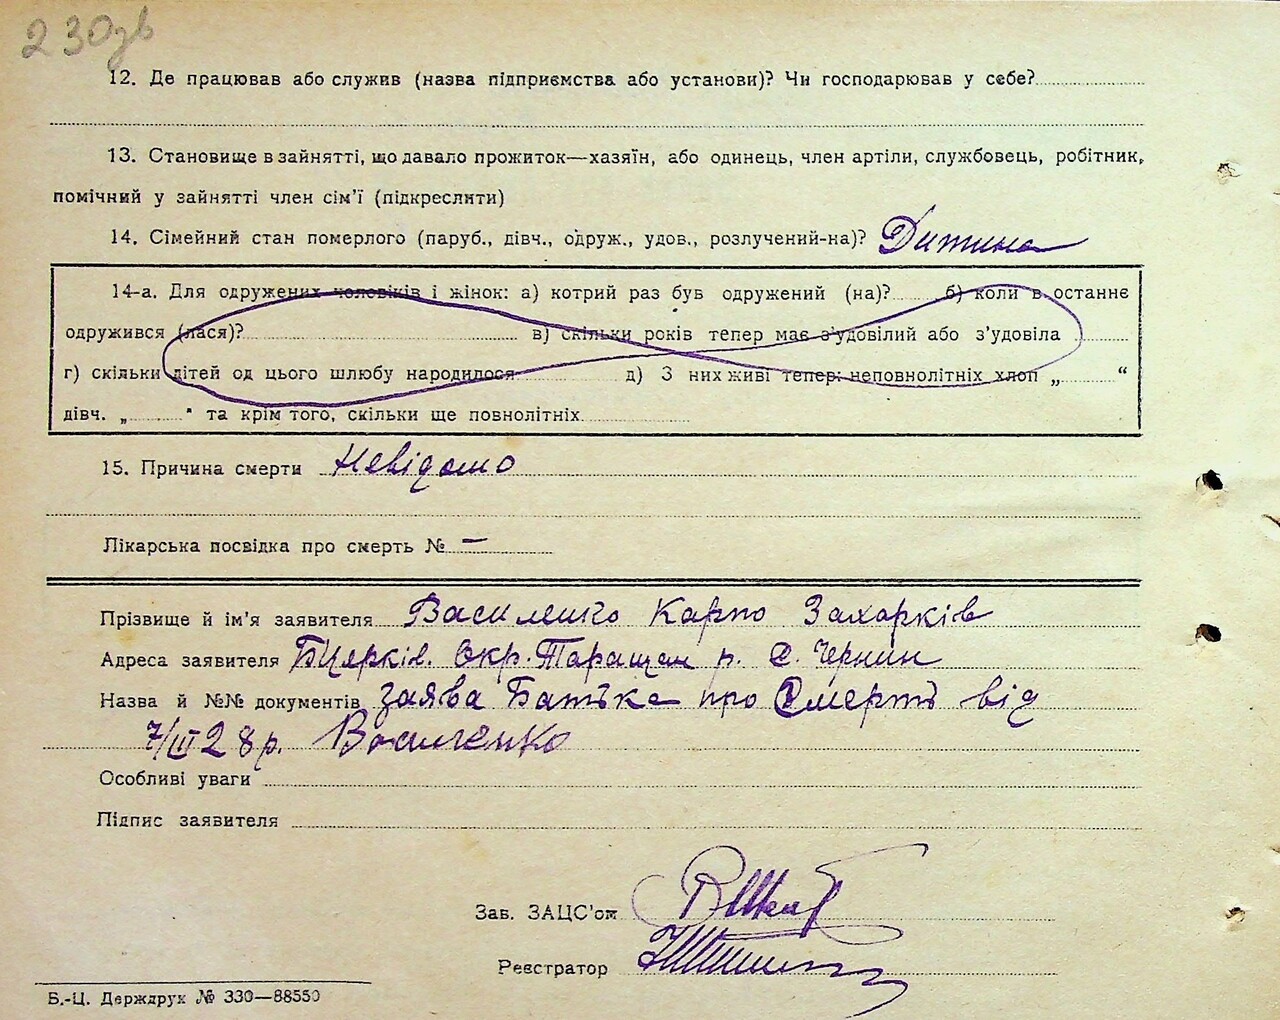 230зв
12. Де працював або служив (назва підприємства або установи)? Чи господарював у себе?
13. Становище в зайнятті, що давало прожиток—хазяїн, або одинець, член артіли, службовець, робітник,
помічний у зайнятті член сім'ї (підкреслити)
14. Сімейний стан померлого (паруб., дівч., одруж., удов., розлучений-на)? Дитина
14-а. Для одружених чоловіків і жінок: а) котрий раз був одружений (на)? б) коли в останнє
одружився (лася)? в) скільки років тепер має з'удовілий або з'удовіла
г) скільки дітей од цього шлюбу народилося д) З них живі тепер: неповнолітніх хлоп „ “
дівч. „ “ та крім того, скільки ще повнолітніх
15. Причина смерти Невідомо
Лікарська посвідка про смерть № —
Прізвище й ім'я заявителя Василенко Карпо Захарків
Адреса заявителя Бцерків. Окр. Таращан р. с. Чернин
Назва й №№ документів заява Батька про Смерть від
7/III 28 р. Василенко
Особливі уваги
Підпис заявителя
Зав. ЗАЦС'ом
Реєстратор
Б.-Ц. Держдрук № 330—88550